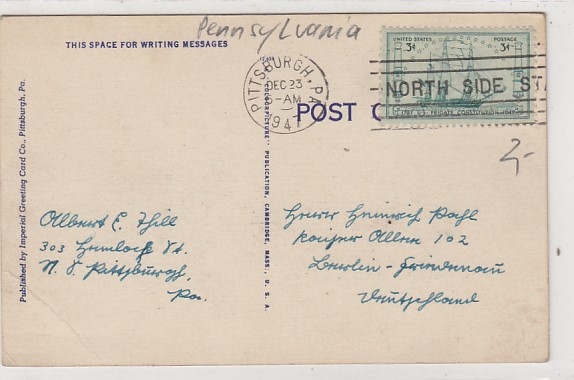 Pennsylvania
THIS SPACE FOR WRITING MESSAGES
UNITED STATES POSTAGE
3¢ 3¢
PITTSBURGH, PA.
DEC 23
-AM
1947
NORTH SIDE STA
POST C
FRIGATE CONSTITUTION
2,-
Published by Imperial Greeting Card Co., Pittsburgh, Pa.
PUBLICATION, CAMBRIDGE, MASS., U. S. A.
Albert E. Thill
303 Hemlock St.
N. S. Pittsburgh,
Pa.
Herrn Heinrich Pohl
Kaiser Allee 102
Berlin-Friedenau
Deutschland